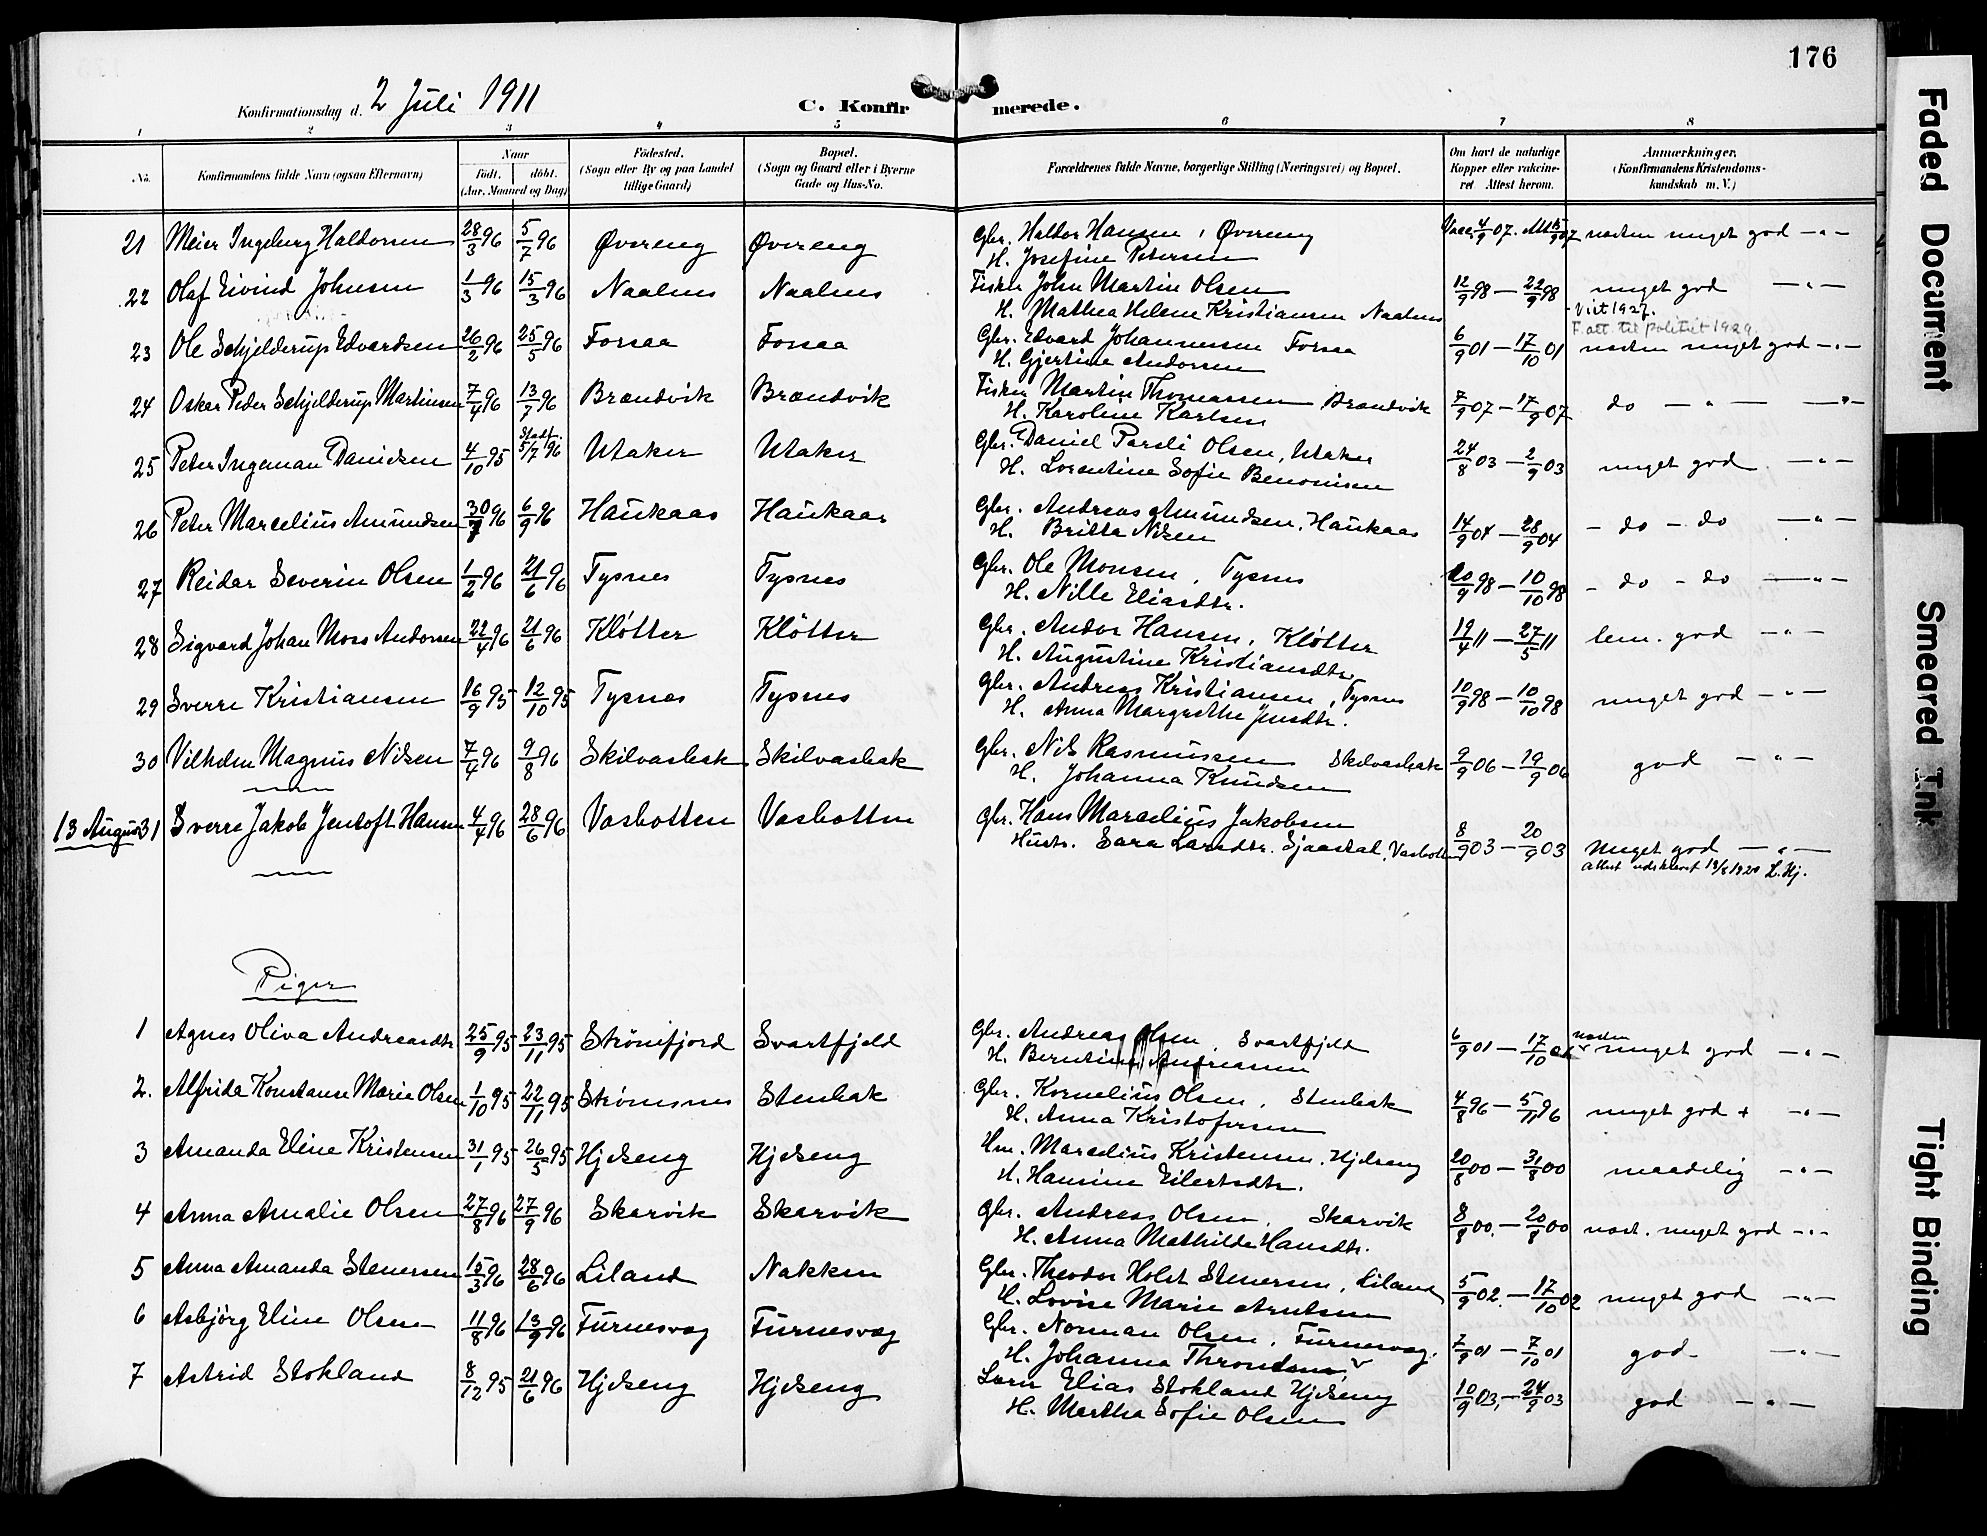 176
Konfirmationsdag d. 2 Juli 1911
C. Konfirmerede.
1 2 3 4 5 6 7 8
No. Konfirmandens fulde Navn (ogsaa Efternavn) Naar født. døbt. (Aar, Maaned og Dag) Fødested. (Sogn eller By og paa Landet tillige Gaard) Bopæl. (Sogn og Gaard eller i Byerne Gade og Hus-No. Forældrenes fulde Navne, borgerlige Stilling (Næringsvei) og Bopæl. Om havt de naturlige Kopper eller vaccineret Attest herom. Anmærkninger. (Konfirmandens Kristendomskundskab m. V.)
21 Meier Ingeberg Haldorsen 28/3 96 5/7 96 Øvereng Øvereng Gbr. Haldor Hansen, Øvereng Vacc. 4/9 07. Att. 15/9 07 næsten meget god — " —
H. Josefine Petersen
22 Olaf Eivind Johnsen 1/3 96 15/3 96 Naalnes Naalnes Fisker John Martin Olsen 12/9 98 — 22/9 98 meget god — " —
H. Mathea Helene Kristiansen Naalnes
Vist 1927.
F. att. til politiet 1929.
23 Ole Schjelderup Edvardsen 26/2 96 25/5 96 Forsaa Forsaa Gbr. Edvard Johannessen Forsaa 6/9 01 — 17/10 01 næsten meget god — " —
H. Gjertine Andorsen
24 Oskar Peder Schjelderup Martinsen 7/4 96 13/7 96 Brændvik Brændvik Fisker Martin Thomassen Brændvik 7/9 07 — 17/9 07 do — " — — " —
H. Karoline Karlsen
25 Peter Ingeman Danielsen 4/10 95 Stadf. 5/7 96 Utaker Utaker Gbr. Daniel Pareli Olsen, Utaker 24/8 03 — 2/9 03 meget god. — " —
H. Lorentine Sofie Benonisen
26 Peter Marcelius Amundsen 30/7 96 6/9 96 Haukaas Haukaas Gbr. Andreas Amundsen, Haukaas 14/9 04 — 28/9 04 — do — do — " —
H. Britta Nilsen
27 Reidar Severin Olsen 1/2 96 21/6 96 Tysnes Tysnes Gbr. Ole Monsen, Tysnes 20/9 98 — 10/10 98 — do — do — " —
H. Nille Eliasdtr.
28 Sigvard Johan Moss Andorsen 22/4 96 21/6 96 Kløtter Kløtter Gbr. Andor Hansen, Kløtter 19/4 11 — 27/5 11 tem. god — " —
H. Augustine Kristiansdtr.
29 Sverre Kristiansen 16/9 95 12/10 95 Tysnes Tysnes Gbr. Andreas Kristiansen, Tysnes 10/9 98 — 10/10 98 meget god — " —
H. Anna Margrethe Jensdtr.
30 Vilhelm Magnus Nilsen 7/4 96 9/8 96 Skilvasbak Skilvasbak Gbr. Nils Rasmussen Skilvasbak 9/9 06 — 19/9 06 god — " —
H. Johanna Knudsen
13 August 31 Sverre Jakob Jentoft Hansen 4/4 96 28/6 96 Vasbotten Vasbotten Gbr. Hans Marcelius Jakobsen 8/9 03 — 20/9 03 Meget god — " —
Hustr. Sara Larsdtr. Sjaastal, Vasbotten
Attest udskrevet 19/8 1920 L. Hj.
Piger
1 Agnes Oliva Andreasdtr 25/9 95 23/11 95 Strömfjord Svartfjeld Gbr. Andreas Olsen, Svartfjeld 6/9 01 — 17/10 01 næsten meget god — " —
H. Berntine Andreassen
2. Alfrida Konstanse Marie Olsen 1/10 95 22/11 95 Strømsnes Stenbak Gbr. Kornelius Olsen, Stenbak 4/8 96 — 5/11 96 meget god + — " —
H. Anna Kristofersen
3 Amanda Eline Kristensen 31/1 95 26/5 95 Hjelseng Hjelseng Hm. Marcelius Kristensen, Hjelseng 20/8 00 — 31/8 00 maadelig — " —
H. Hansine Eilertsdtr.
4 Anna Amalie Olsen 27/8 96 27/9 96 Skarvik Skarvik Gbr. Andreas Olsen, Skarvik 8/8 00. — 20/8 00 næst. meget god — " —
H. Anna Mathilde Hansdtr.
5 Anna Amanda Stenersen 15/3 96 28/6 96 Liland Nakken Gbr. Theodor Holst Stenersen, Liland 5/9 02. — 17/10 02 meget god — " —
H. Lovise Marie Arntsen
6 Asbjörg Eline Olsen 11/8 96 13/9 96 Furnesvag Furnesvag Gbr. Norman Olsen, Furnesvag. 7/9 01 — 7/10 01 god — " —
H. Johanna Throndsen
7 Astrid Stokland 8/12 95 21/6 96 Hjelseng Hjelseng Lærer Elias Stokland Hjelseng 10/9 03, — 24/9 03 god — " —
H. Martha Sofie Olsen
Faded Document
Smeared Ink
Tight Binding